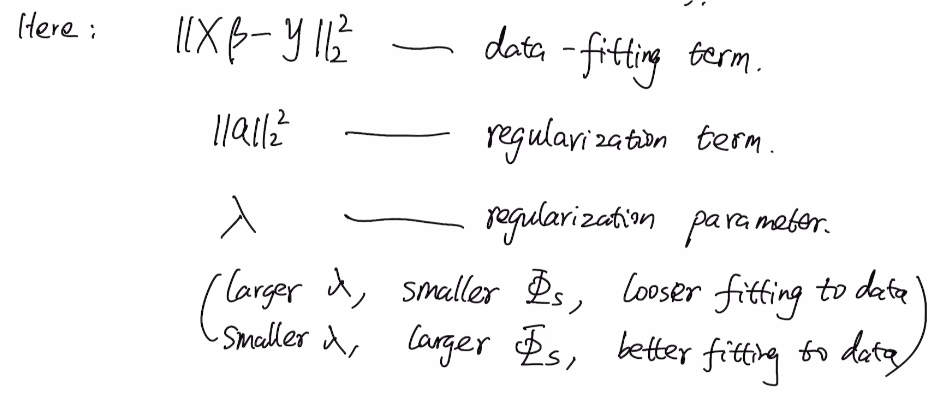 Here : ||Xβ - y||₂² — data - fitting term.
||a||₂² — regularization term.
λ — regularization parameter.
(larger λ, smaller Φs, looser fitting to data
smaller λ, larger Φs, better fitting to data)